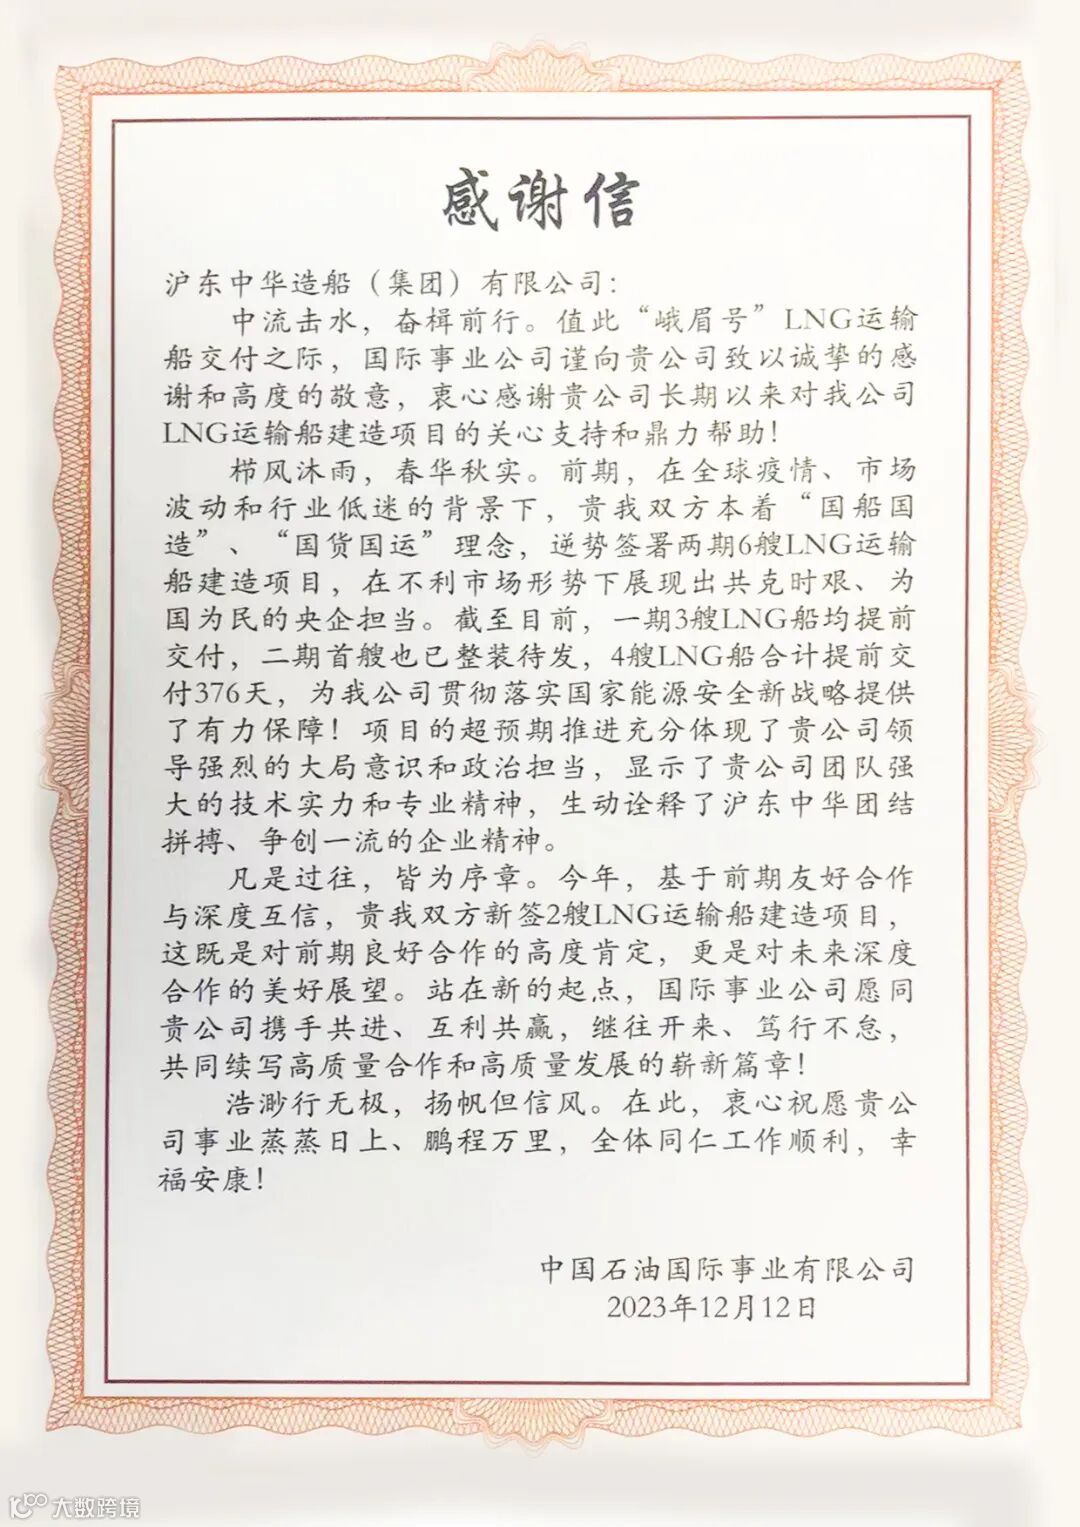 感谢信
沪东中华造船（集团）有限公司：
中流击水，奋楫前行。值此“峨眉号”LNG运输
船交付之际，国际事业公司谨向贵公司致以诚挚的感
谢和高度的敬意，衷心感谢贵公司长期以来对我公司
LNG运输船建造项目的关心支持和鼎力帮助！
栉风沐雨，春华秋实。前期，在全球疫情、市场
波动和行业低迷的背景下，贵我双方本着“国船国
造”、“国货国运”理念，逆势签署两期6艘LNG运输
船建造项目，在不利市场形势下展现出共克时艰、为
国为民的央企担当。截至目前，一期3艘LNG船均提前
交付，二期首艘也已整装待发，4艘LNG船合计提前交
付376天，为我公司贯彻落实国家能源安全新战略提供
了有力保障！项目的超预期推进充分体现了贵公司领
导强烈的大局意识和政治担当，显示了贵公司团队强
大的技术实力和专业精神，生动诠释了沪东中华团结
拼搏、争创一流的企业精神。
凡是过往，皆为序章。今年，基于前期友好合作
与深度互信，贵我双方新签2艘LNG运输船建造项目，
这既是对前期良好合作的高度肯定，更是对未来深度
合作的美好展望。站在新的起点，国际事业公司愿同
贵公司携手共进、互利共赢，继往开来、笃行不怠，
共同续写高质量合作和高质量发展的崭新篇章！
浩渺行无极，扬帆但信风。在此，衷心祝愿贵公
司事业蒸蒸日上、鹏程万里，全体同仁工作顺利，幸
福安康！
中国石油国际事业有限公司
2023年12月12日
大数跨境